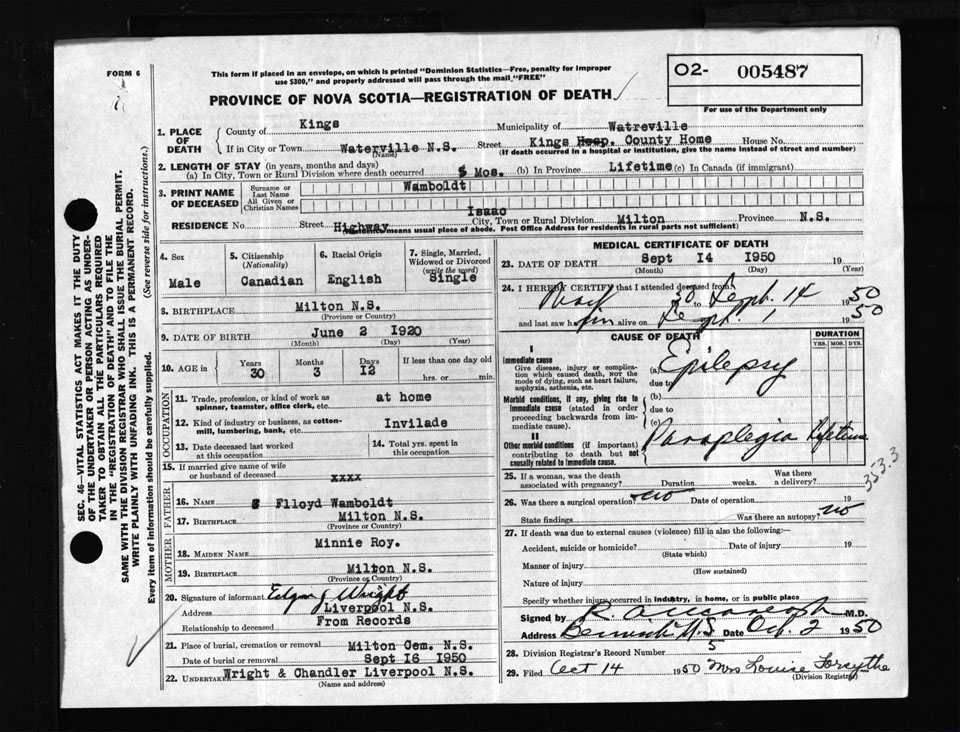 FORM 6
This form if placed in an envelope, on which is printed "Dominion Statistics—Free, penalty for improper
use $300," and properly addressed will pass through the mail "FREE"
PROVINCE OF NOVA SCOTIA—REGISTRATION OF DEATH
O2- 005487
For use of the Department only
SEC. 46—VITAL STATISTICS ACT MAKES IT THE DUTY
OF THE UNDERTAKER OR PERSON ACTING AS UNDER-
TAKER TO OBTAIN ALL THE PARTICULARS REQUIRED
IN THE "REGISTRATION OF DEATH" AND TO FILE THE
SAME WITH THE DIVISION REGISTRAR WHO SHALL ISSUE THE BURIAL PERMIT.
WRITE PLAINLY WITH UNFADING INK. THIS IS A PERMANENT RECORD.
Every item of information should be carefully supplied. (See reverse side for instructions.)
1. PLACE OF DEATH
County of Kings Municipality of Watreville
If in City or Town Waterville N.S. Street Kings Hosp. County Home House No.
(Name) (If death occurred in a hospital or institution, give the name instead of street and number)
2. LENGTH OF STAY (in years, months and days)
(a) In City, Town or Rural Division where death occurred 5 Mos. (b) In Province Lifetime (c) In Canada (if immigrant)
3. PRINT NAME OF DECEASED
Surname or Last Name Wamboldt
All Given or Christian Names Isaac
RESIDENCE No. Street Highway City, Town or Rural Division Milton Province N.S.
(Residence means usual place of abode. Post Office Address for residents in rural parts not sufficient)
4. Sex Male
5. Citizenship (Nationality) Canadian
6. Racial Origin English
7. Single, Married, Widowed or Divorced (write the word) Single
8. BIRTHPLACE Milton N.S.
(Province or Country)
9. DATE OF BIRTH June 2 1920
(Month) (Day) (Year)
10. AGE in Years 30 Months 3 Days 12 If less than one day old hrs. or min.
OCCUPATION
11. Trade, profession, or kind of work as spinner, teamster, office clerk, etc. at home
12. Kind of industry or business, as cotton-mill, lumbering, bank, etc. Invilade
13. Date deceased last worked at this occupation
14. Total yrs. spent in this occupation
15. If married give name of wife or husband of deceased xxxx
FATHER
16. Name Flloyd Wamboldt
17. Birthplace Milton N.S.
(Province or Country)
MOTHER
18. Maiden Name Minnie Roy.
19. Birthplace Milton N.S.
(Province or Country)
20. Signature of informant Edgar J Wright
Address Liverpool N.S.
Relationship to deceased From Records
21. Place of burial, cremation or removal Milton Cem. N.S.
Date of burial or removal Sept 16 1950
22. Undertaker Wright & Chandler Liverpool N.S.
(Name and address)
MEDICAL CERTIFICATE OF DEATH
23. DATE OF DEATH Sept 14 1950 19
(Month) (Day) (Year)
24. I HEREBY CERTIFY that I attended deceased from
30 to Sept. 14 1950
and last saw him alive on Sept. 1 1950
CAUSE OF DEATH DURATION
YRS. MOS. DYS.
I
Immediate cause
Give disease, injury or complica-
tion which caused death, NOT the
mode of dying, such as heart failure,
asphyxia, asthenia, etc.
(a) Epilepsy
due to
Morbid conditions, if any, giving rise to
immediate cause (stated in order
proceeding backwards from im-
mediate cause).
(b)
due to
(c)
II
Other morbid conditions (if important)
contributing to death but not
causally related to immediate cause.
Paraplegia Lifetime
353.3
25. If a woman, was the death associated with pregnancy? Duration weeks. Was there a delivery?
26. Was there a surgical operation? no Date of operation 19
State findings Was there an autopsy? no
27. If death was due to external causes (violence) fill in also the following:—
Accident, suicide or homicide? Date of injury 19
(State which)
Manner of injury
(How sustained)
Nature of injury
Specify whether injury occurred in industry, in home, or in public place
Signed by M.D.
Address Berwick N.S. Date Oct. 2 1950
28. Division Registrar's Record Number 5
29. Filed Oct 14 1950 Mrs Louise Forsythe
(Division Registrar)